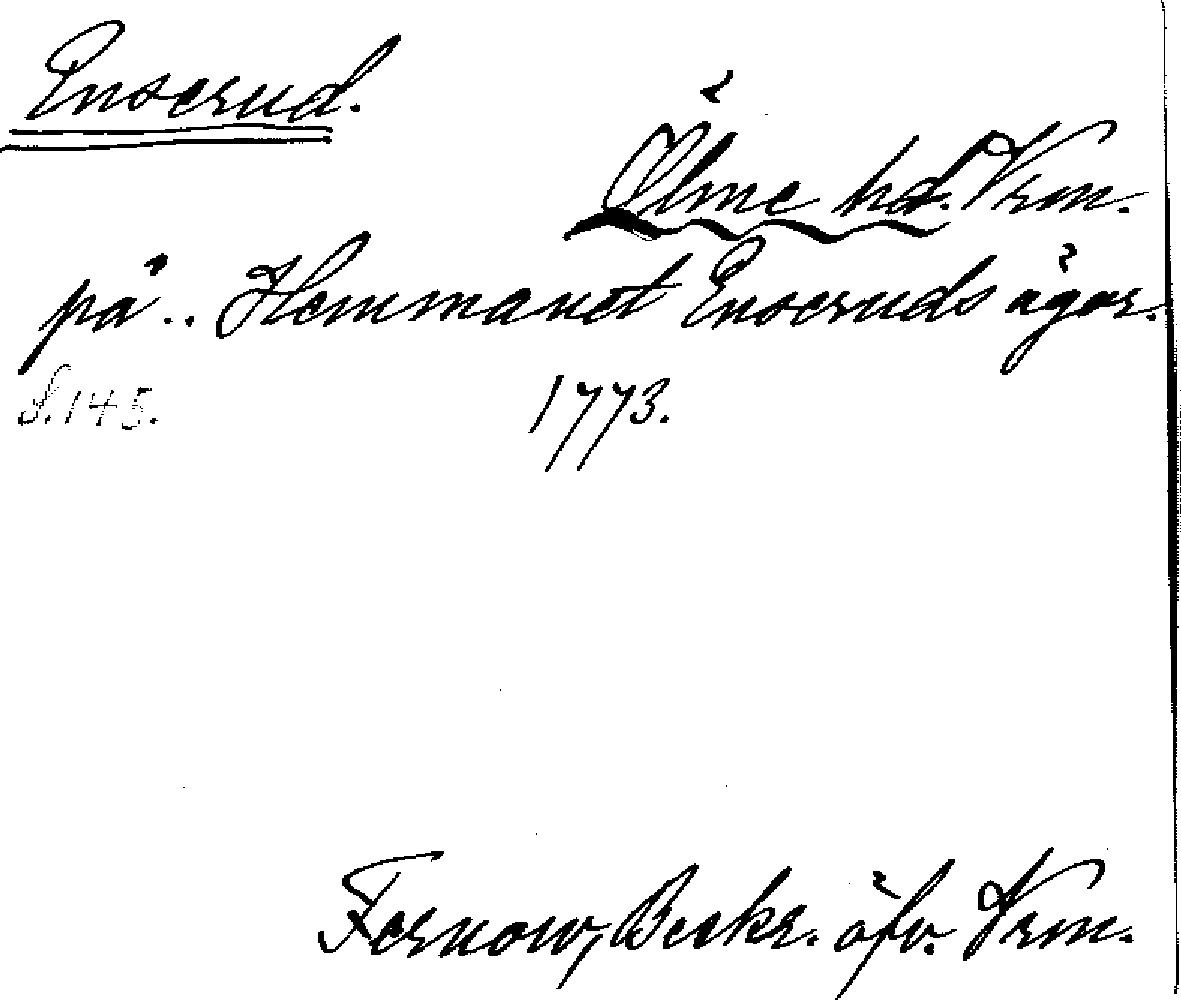 Enserud.
Ölme hd. Vrm.
på .. Hemmanet Enseruds ägor.
S. 145. 1773.
Fernow, Beskr. öfv. Vrm.